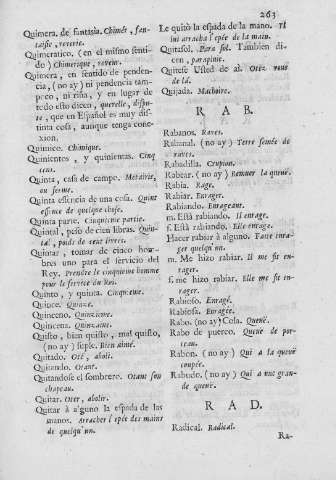 263
Quimera, de fantasia. Chimére, fan-
taisie, reverie.
Quimeratico, (en el mismo senti-
do) Chimerique, reveur.
Quimera, en sentido de penden-
cia, (no ay) ni pendencia tam-
poco, ni riña, y en lugar de
todo esto dicen, querelle, dispu-
te, que en Español es muy dis-
tinta cosa, aunque tenga cone-
xion.
Quimico. Chimique.
Quinientos, y quinientas. Cinq
cens.
Quinta, casa de campo. Metairie,
ou ferme.
Quinta essencia de una cosa. Quint
essence de quelque chose.
Quinta parte. Cinquieme partie.
Quintal, peso de cien libras. Quin-
tal, poids de cent livres.
Quintar, tomar de cinco hom-
bres uno para el servicio del
Rey. Prendre le cinquieme homme
pour le service du Roi.
Quinto, y quinta. Cinqueme.
Quince. Quinze.
Quinceno. Quinzieme.
Quincena. Quinzaine.
Quisto, bien quisto, mal quisto,
(no ay) suple. Bien aimé.
Quitado. Oté, aboli.
Quitando. Otant.
Quitandose el sombrero. Otant son
chapeau.
Quitar. Oter, abolir.
Quitar à alguno la espada de las
manos. Arracher l'epée des mains
de quelqu'un.
Le quitò la espada de la mano. Il
lui arracha l'epée de la main.
Quitasol. Para sol. Tambien di-
cen, parapluie.
Quitese Usted de ai. Otez vous
de là.
Quijada. Machoire.
R A B.
Rabanos. Raves.
Rabanal. (no ay) Terre semée de
raves.
Rabadilla. Crupion.
Rabear. (no ay) Remuer la queue.
Rabia. Rage.
Rabiar. Enrager.
Rabiando. Enrageant.
m. Està rabiando. Il enrage.
f. Està rabiando. Elle enrage.
Hacer rabiar à alguno. Faire enra-
ger quelqu'un.
m. Me hizo rabiar. Il me fit en-
rager.
f. me hizo rabiar. Elle me fit en-
rager.
Rabioso. Enragé.
Rabiosa. Enragée.
Rabo. (no ay) Cola. Queue.
Rabo de puerco. Queue de por-
ceau.
Rabon. (no ay) Qui a la queue
coupée.
Rabudo. (no ay) Qui a une gran-
de queue.
R A D.
Radical. Radical.
Ra-